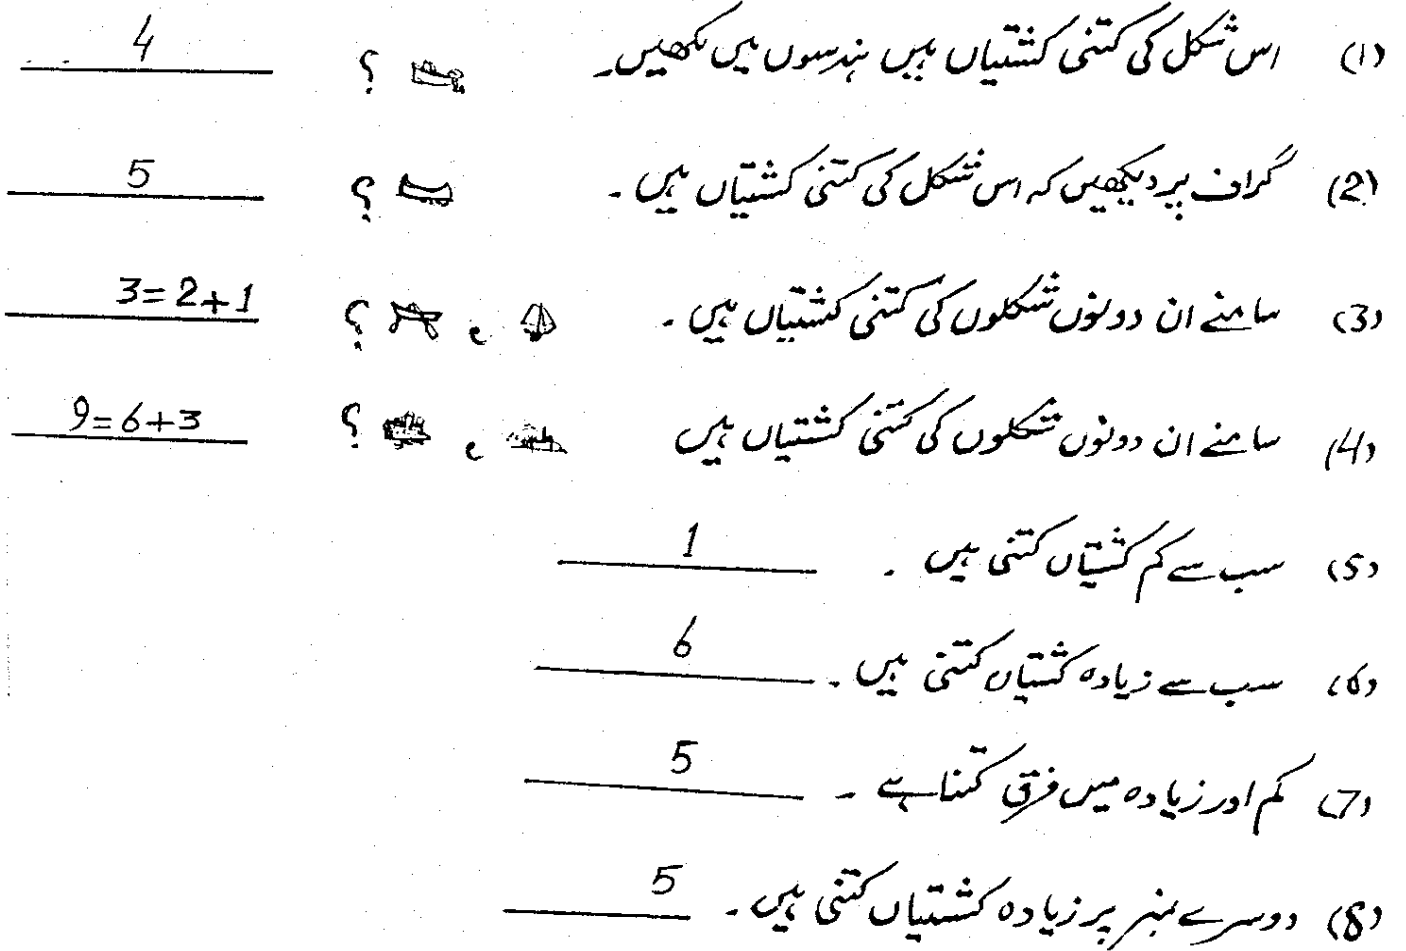 (1) اس شکل کی کتنی کشتیاں ہیں ہندسوں میں لکھیں۔ ؟ 4
(2) گراف پر دیکھیں کہ اس شکل کی کتنی کشتیاں ہیں۔ ؟ 5
(3) سامنے ان دونوں شکلوں کی کتنی کشتیاں ہیں۔ و ؟ 3=2+1
(4) سامنے ان دونوں شکلوں کی کتنی کشتیاں ہیں و ؟ 9=6+3
(5) سب سے کم کشتیاں کتنی ہیں۔ 1
(6) سب سے زیادہ کشتیاں کتنی ہیں۔ 6
(7) کم اور زیادہ میں فرق کتنا ہے۔ 5
(8) دوسرے نمبر پر زیادہ کشتیاں کتنی ہیں۔ 5